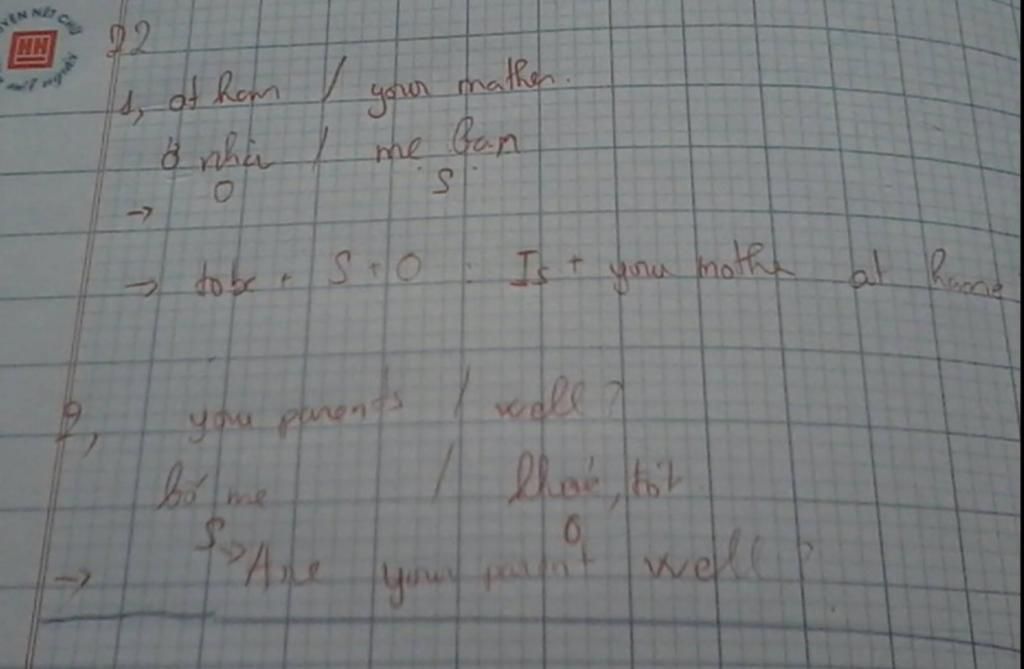 YỆN NÉT CHỮ
HN
22
1, at hom / your mather.
ở nhà / mẹ bạn
O S
→
→ tobe + S + O : Is + you moth at
2, you parents / well?
bố mẹ / khoẻ, tốt
S O
→ → Are your parent well?